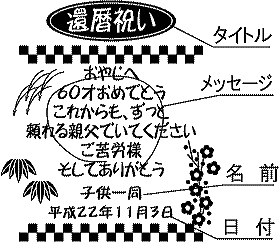 還暦祝い
タイトル
おやじへ
60才おめでとう
メッセージ
これからも、ずっと
頼れる親父でいてください
ご苦労様
そしてありがとう
子供一同
名前
平成22年11月3日
日付